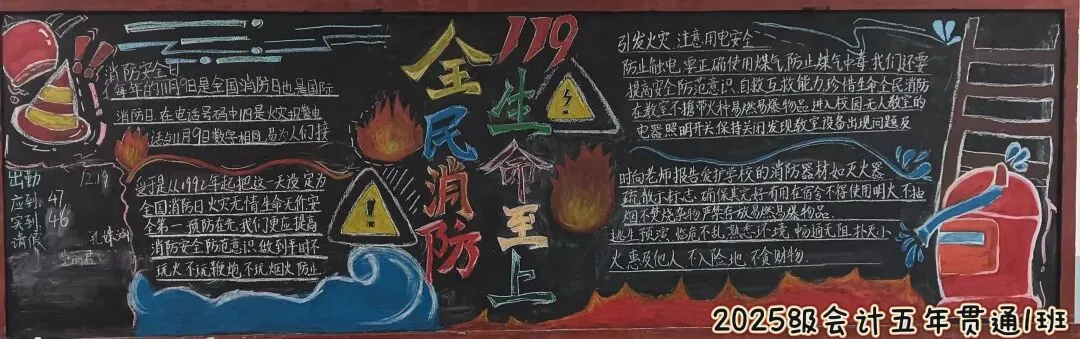 消防安全日
每年的11月9日是全国消防日也是国际
消防日.在电话号码中119是火灾报警电
话与11月9日数字相同,易为人们接
于是从1992年起,把这一天设定为
全国消防日火灾无情生命无价安
全第一 预防在先我们更应提高
消防安全防范意识,做到平时不
玩火不玩鞭炮,不玩烟火防止
出勤 12.19
应到: 47
实到: 46
请假:
全民消防
119
生命至上
引发火灾.注意用电安全
防止触电,要正确使用煤气,防止煤气中毒 我们还要
提高安全防范意识、自救互救能力,珍惜生命全民消防
在教室不携带火种易燃易爆物品,进入校园无人教室的
电器.照明开关保持关闭发现教室设备出现问题及
时向老师报告爱护学校的消防器材如灭火器
疏散示标志,确保其完好有用在宿舍不得使用明火不抽
烟不焚烧杂物严禁存放易燃易爆物品.
逃生预演,临危不乱,熟悉环境,畅通无阻,扑灭小
火,惠及他人,不入险地,不贪财物
2025级会计五年贯通1班